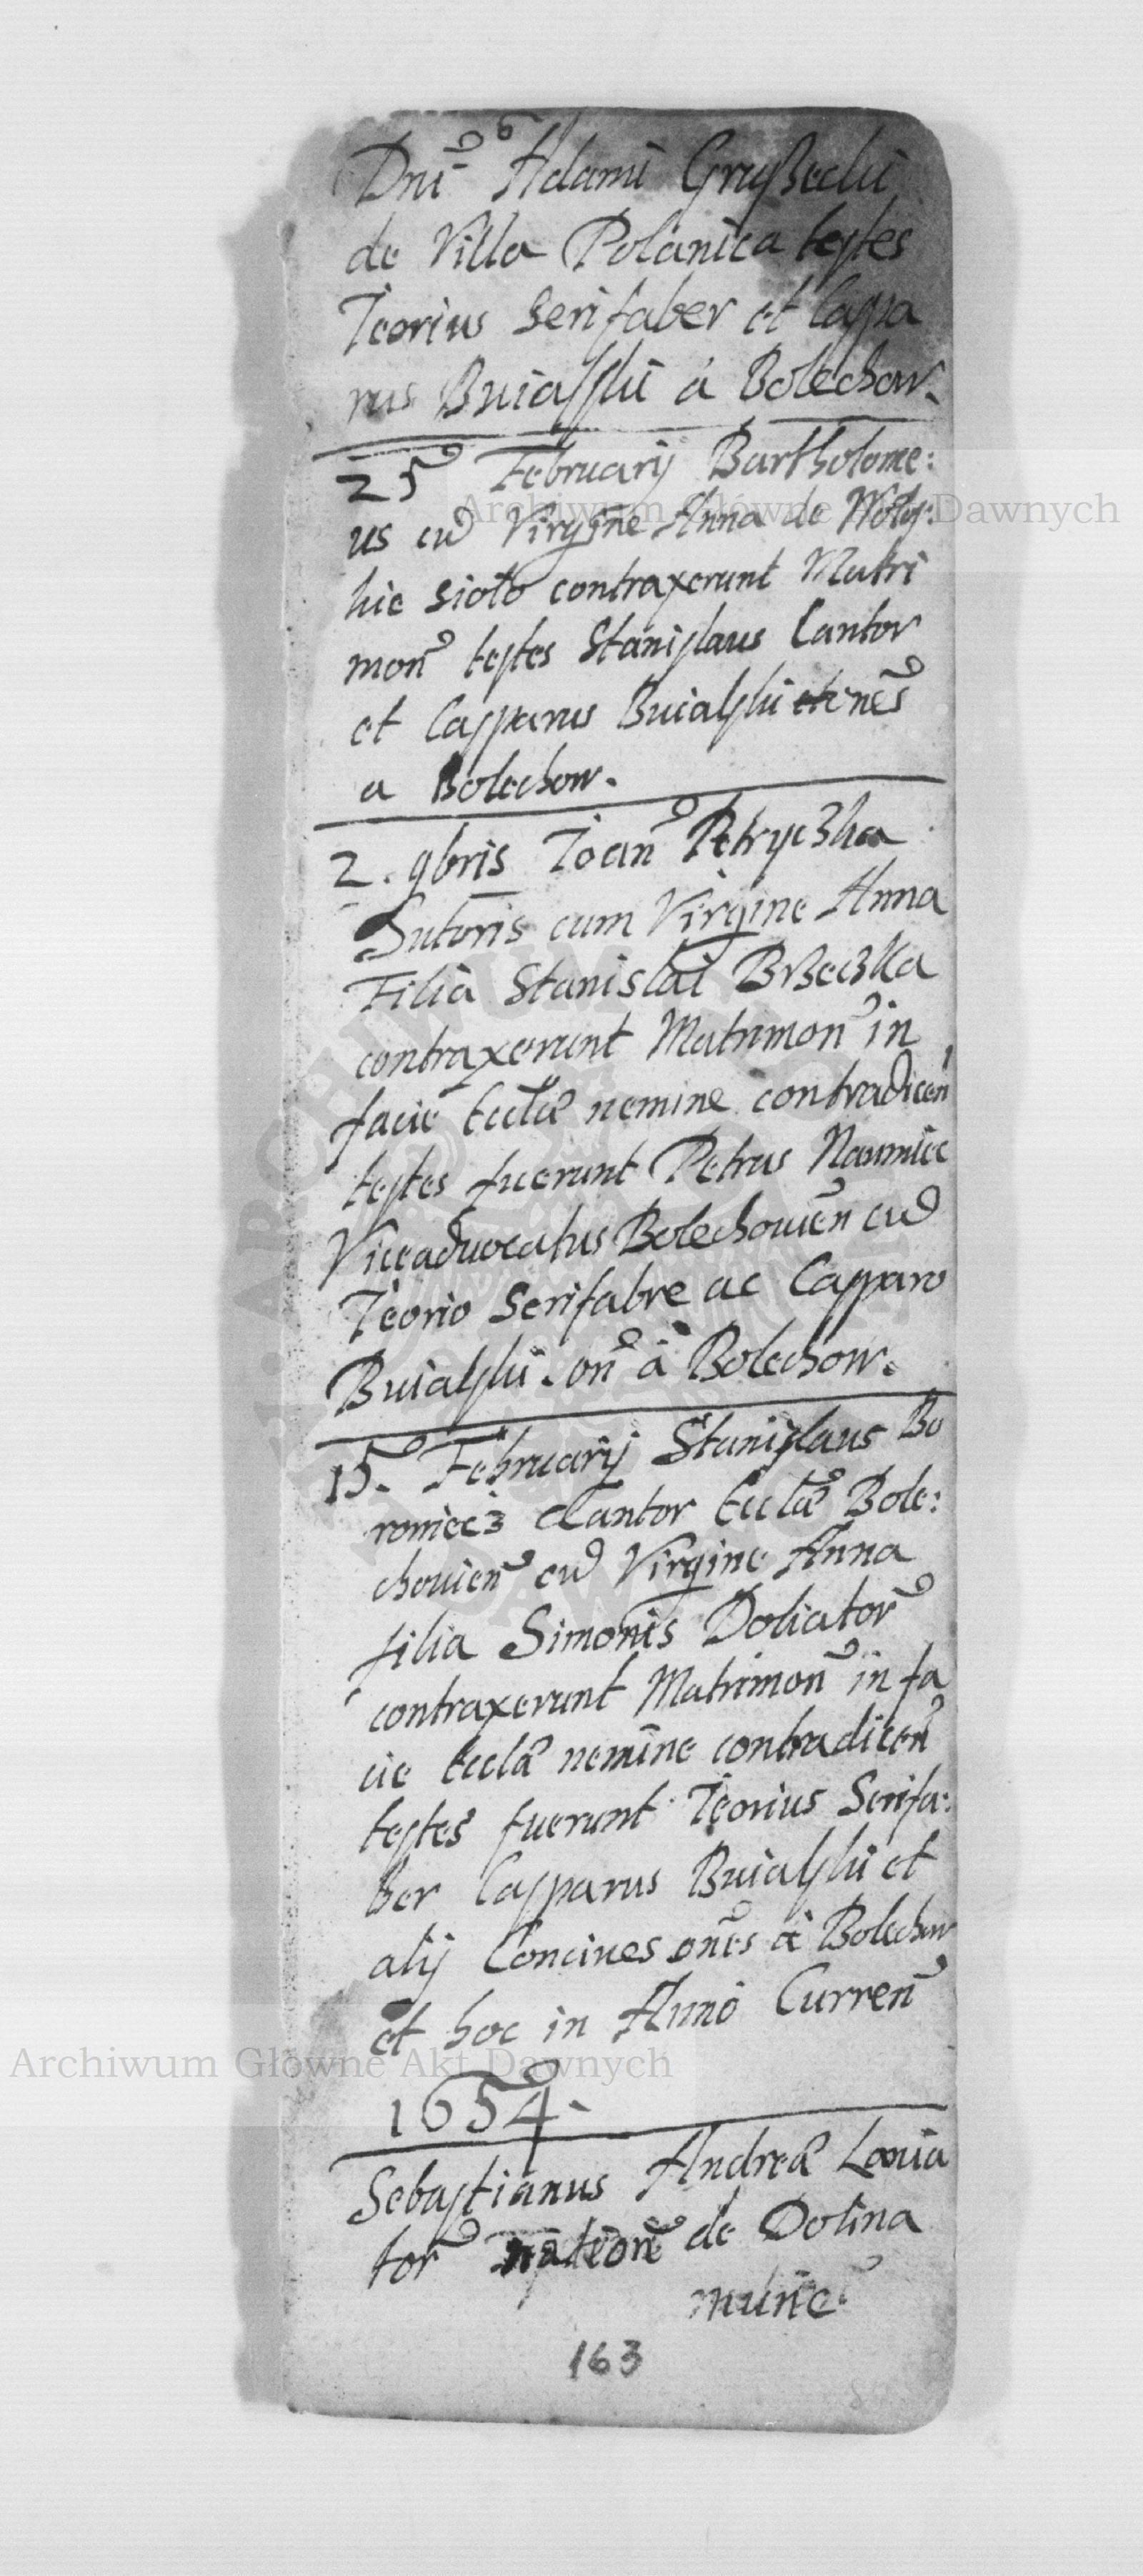 Dni Adami Grußecki
de Villa Polanica testes
Jeorius Serifaber et Caspa
rus Buialski á Bolechow.
25 February Bartholome:
us cu Virgine Anna de Woło:
skie sioło contraxerunt Matri
mon testes Stanislaus Cantor
et Casparus Buialski nes
a Bolechow.
2. 9bris Joan Petryczka
Sutoris cum Virgine Anna
Filia Stanislai Brzeczka
contraxerunt Matrimon in
facie Eccla nemine contradicen
testes fuerunt Petrus Naumiec
Viceadvocatus Bolechouien cu
Jeorio Serifabre ac Casparo
Buialski. on á Bolechow.
15. February Stanislaus Bo
roniecz Cantor Eccla Bole:
chouien cu Virgine Anna
filia Simonis Doliator
contraxerunt Matrimon in fa
cie Eccla nemine contradicen
testes fuerunt Jeorius Serifa:
ber Casparus Buialski et
alij Conciues ones á Bolechow
et hoc in Anno Curren
1654.
Sebastianus Andrea Lania
tor de Dolina
163
Archiwum Główne Akt Dawnych
Archiwum Główne Akt Dawnych